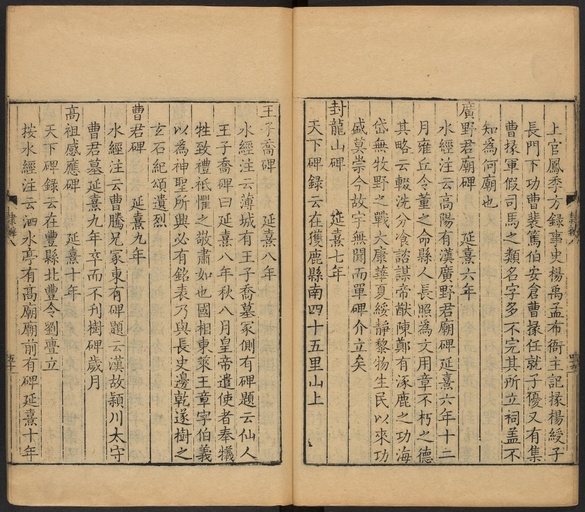 上官鳳季方錄事史楊禹孟布衙主記掾楊綬子
長門下功曹裴篤伯安倉曹掾任就子優又有集
曹掾軍假司馬之類名字多不完其所立祠蓋不
知為何廟也
廣野君廟碑 延熹六年
水經注云高陽有漢廣野君廟碑延熹六年十二
月雍丘令董之命縣人長照為文用章不朽之德
其略云輟洗分食諮謀帝猷陳鄭有涿鹿之功海
岱無牧野之戰大康華夏綏靜黎物生民以來功
盛莫崇今故宇無聞而單碑介立矣
封龍山碑 延熹七年
天下碑錄云在獲鹿縣南四十五里山上
王子喬碑 延熹八年
水經注云薄城有王子喬墓冢側有碑題云仙人
王子喬碑曰延熹八年秋八月皇帝遣使者奉犧
牲致禮祗懼之敬肅如也國相東萊王璋字伯義
以為神聖所興必有銘表乃與長史邊乾遂樹之
玄石紀頌遺烈
曹君碑 延熹九年
水經注云曹騰兄冢東有碑題云漢故潁川太守
曹君墓延熹九年卒而不刊樹碑歲月
高祖感應碑 延熹十年
天下碑錄云在豐縣北豐令劉豐立
按水經注云泗水亭有高廟廟前有碑延熹十年